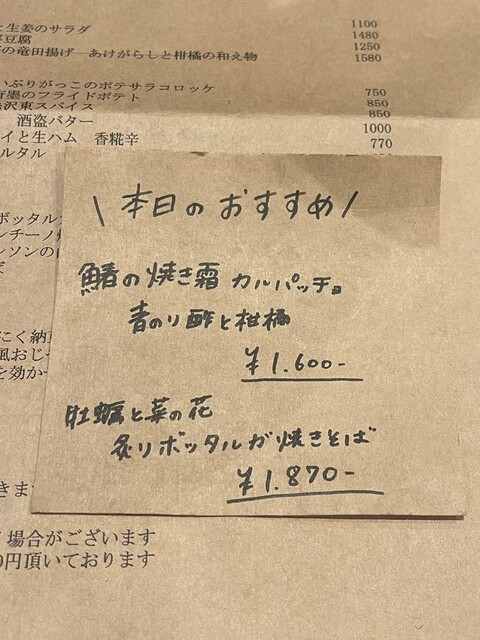 と生姜のサラダ 1100
豆腐 1480
の竜田揚げ あけがらしと柑橘の和え物 1250
1580
いぶりがっこのポテサラコロッケ 750
のフライドポテト 850
沢東スパイス 850
酒盗バター 1000
イと生ハム 香糀辛 770
ルタル
\ 本日のおすすめ /
鰆の焼き霜 カルパッチョ
青のり酢と柑橘
¥1.600-
牡蠣と菜の花
炙りボッタルガ焼きそば
¥1.870-
ボッタル
ンチーノ
ソンの
にく納豆
風おじ
を効か
きま
場合がございます
0円頂いております